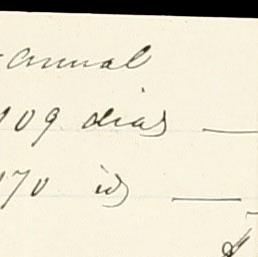 annual
909 dias —
170 id —
$